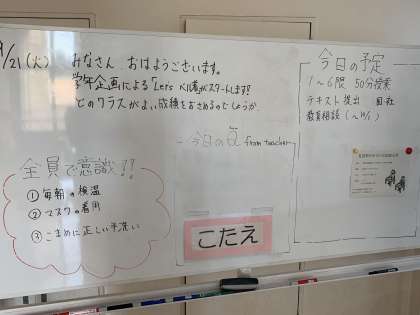 9/21(火) みなさん おはようございます。
学年企画による「Let's ベル着」がスタートします!!
どのクラスがよい成績をおさめるのでしょうか
今日の予定
1〜6限 50分授業
テキスト提出 国社
教育相談(〜)
今日のQ from teacher
こたえ
全員で意識!!
①毎朝の検温
②マスクの着用
③こまめに正しい手洗い